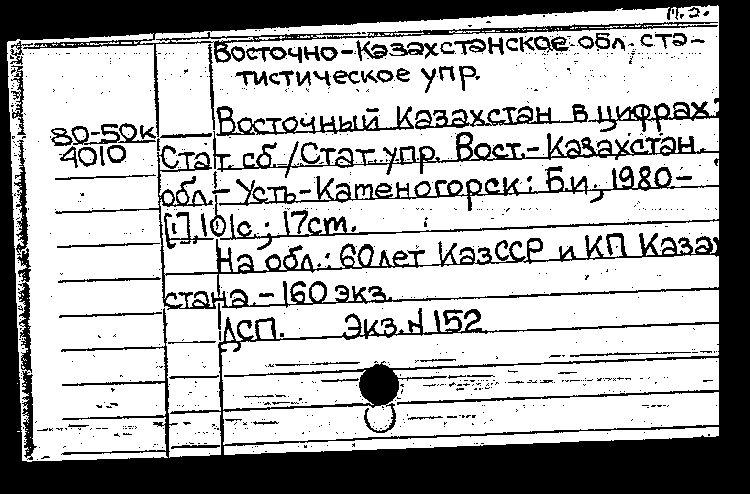 М.2.
Восточно-Казахстанское обл. ста-
тистическое упр.
Восточный Казахстан в цифрах:
80-50к
4010
Стат. сб./Стат. упр. Вост.-Казахстан.
обл.- Усть-Катеногорск: Б.и., 1980-
[1], 101с.; 17ст.
На обл.: 60 лет КазССР и КП Казах
стана.-160 экз.
ДСП. Экз.N 152